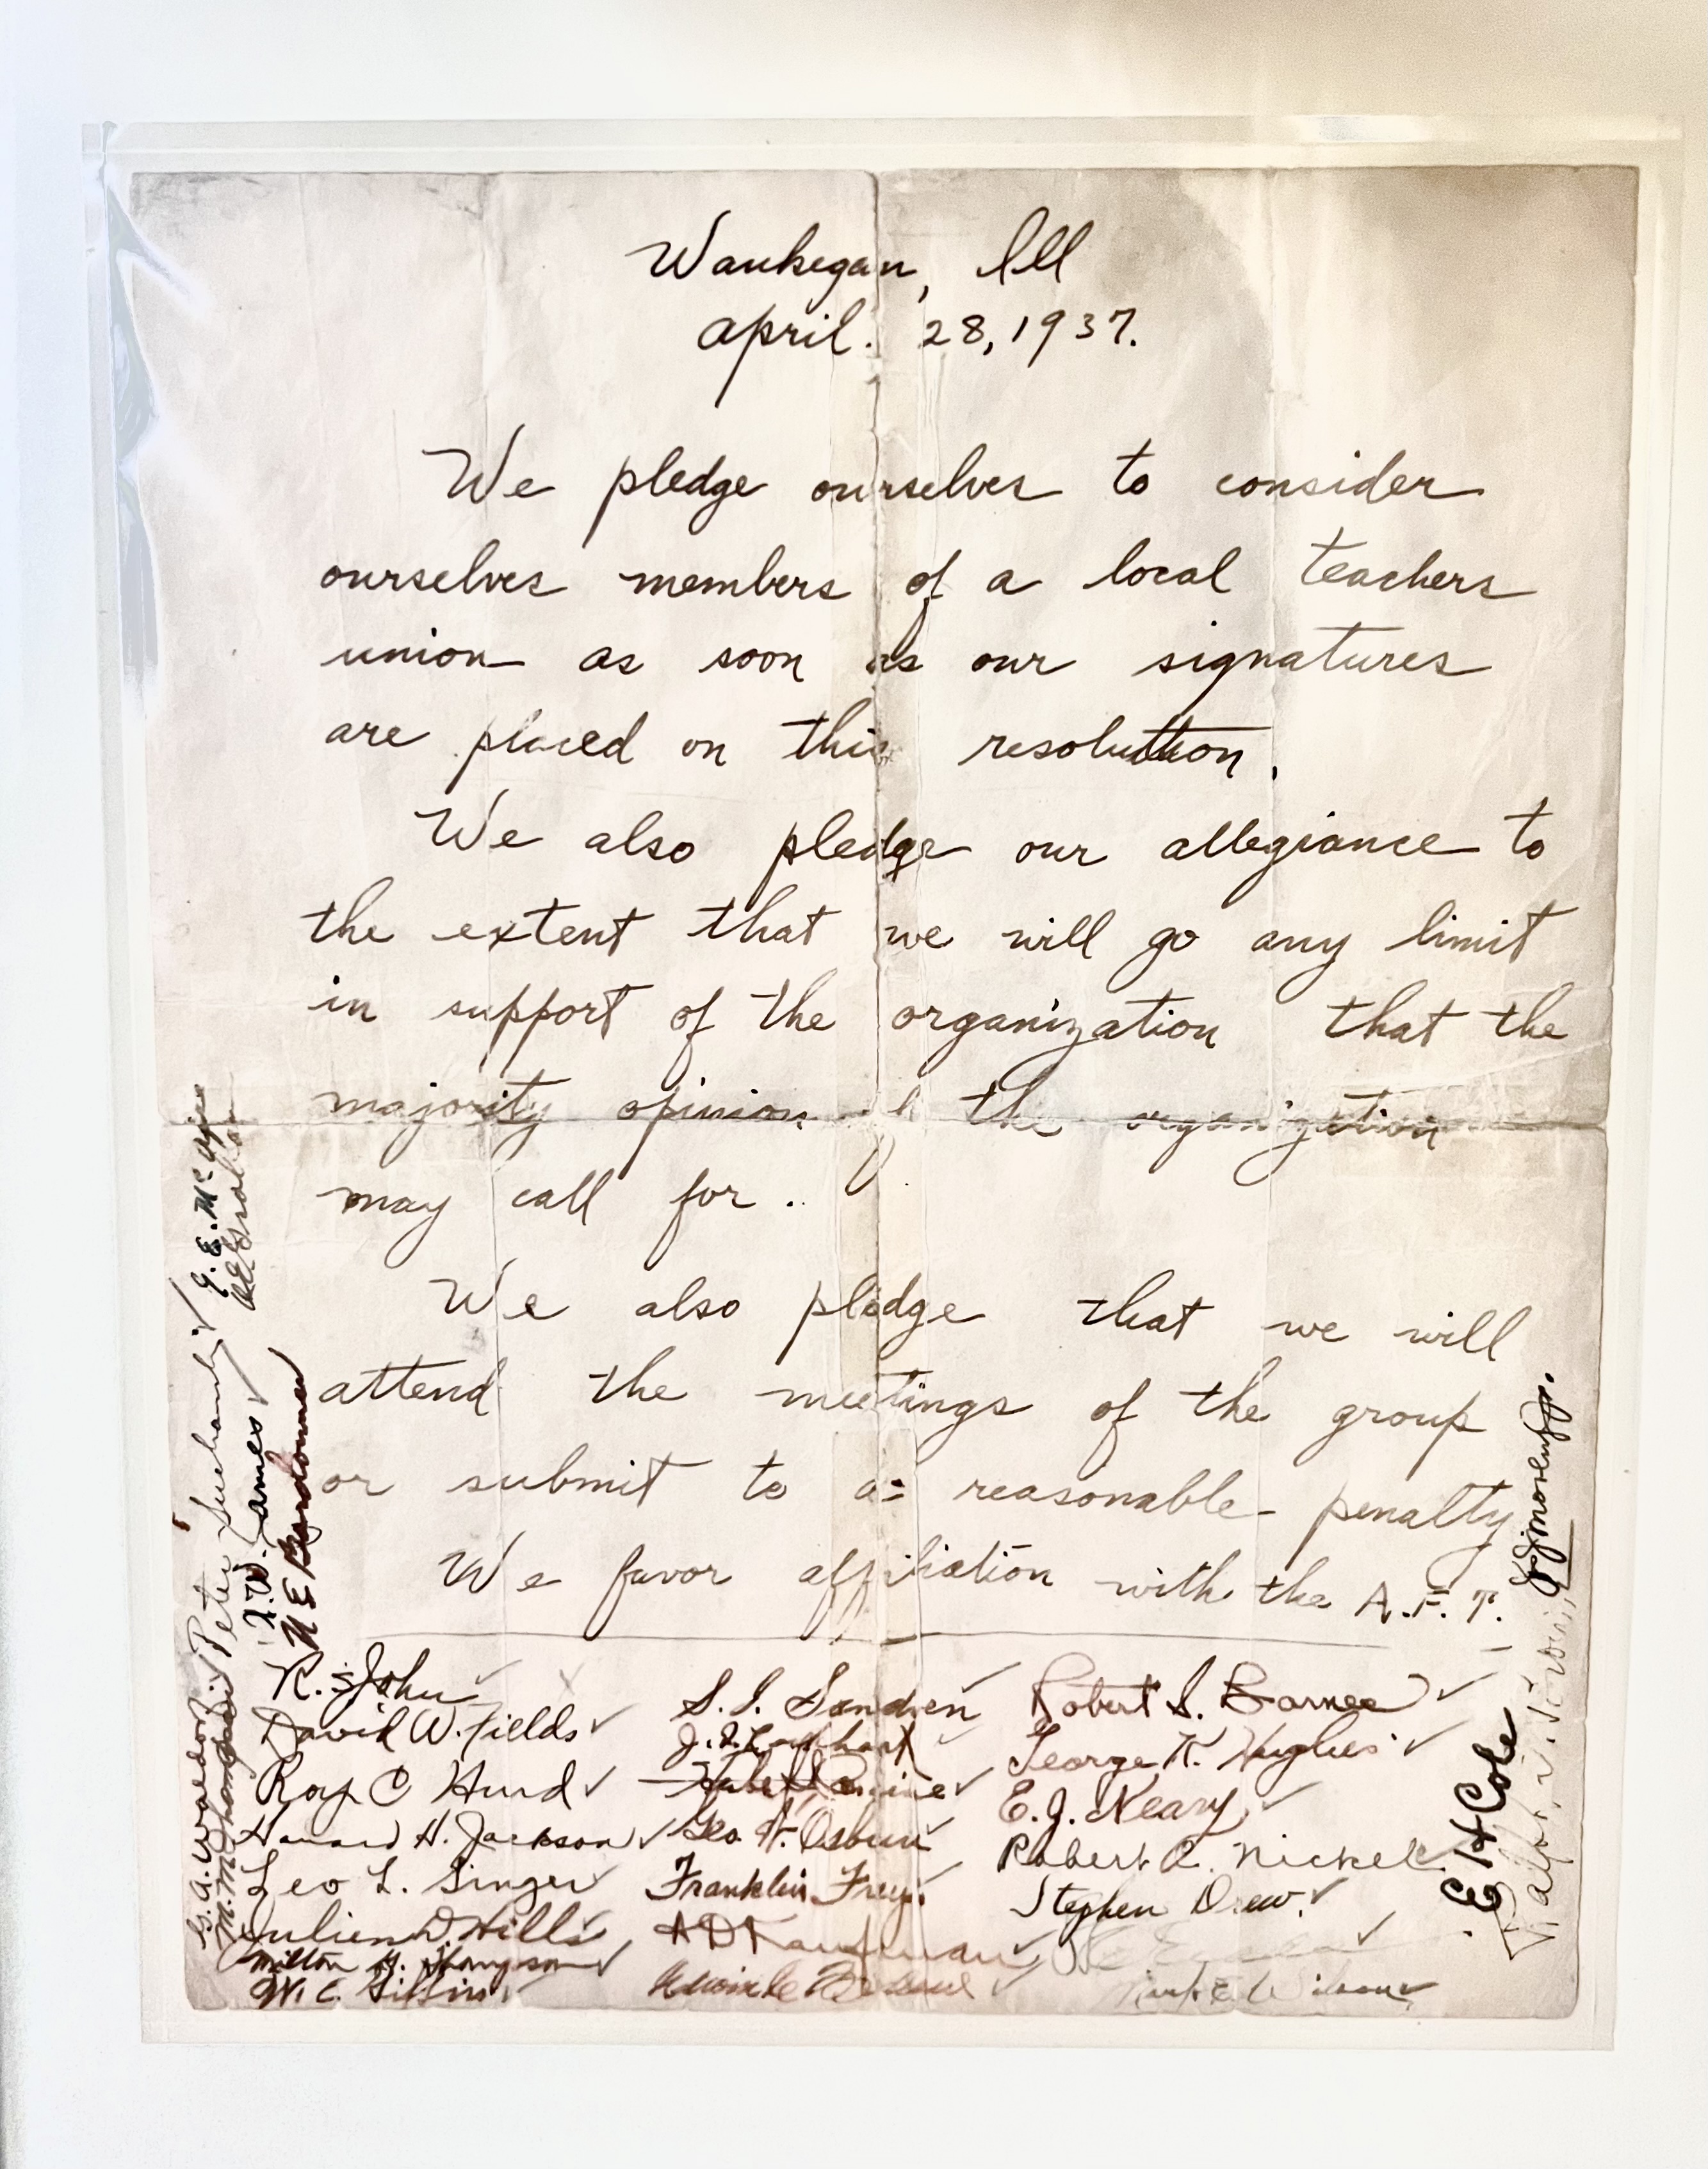 Waukegan, Ill
April. 28, 1937.
We pledge ourselves to consider
ourselves members of a local teachers
union as soon as our signatures
are placed on this resolution.
We also pledge our allegiance to
the extent that we will go any limit
in support of the organization that the
majority opinion of the organization
may call for.
We also pledge that we will
attend the meetings of the group
or submit to a reasonable penalty
We favor affiliation with the A.F.T.
R. John
David W. Fields
Roy C Hurd
Howard H. Jackson
Leo L. Singer
Julien D. Hills
Milton H. Thompson
W. C.
S. I.
J. I.
Geo. H. Osburn
Franklin Frey
A D Kaufman
Robert S. Barnes
George K. Hughes
E. J. Neary
Robert C. Nickel
Stephen Drew
Wilson
G. A. Waldorf
M. M.
Peter
James
N E
G. E. Mc
E H Cole
Ralph